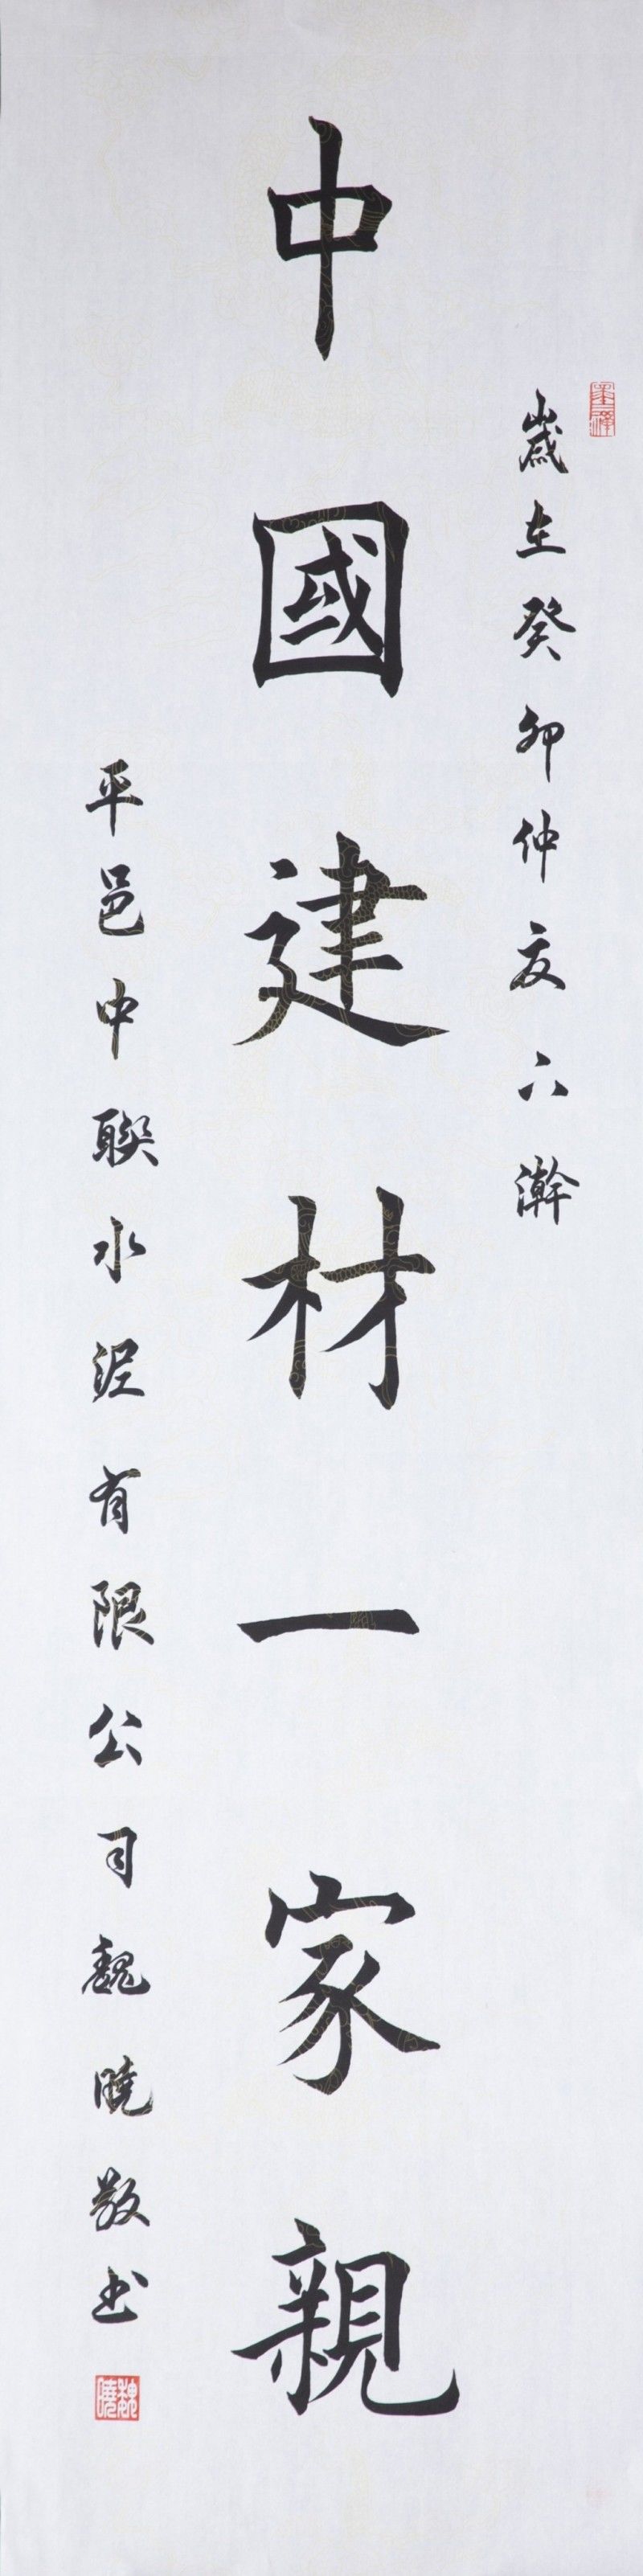 歲在癸卯仲夏六澣
中國建材一家親
平邑中聯水泥有限公司魏曉敬书
魏曉